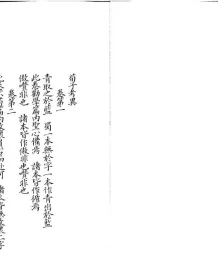 荀子考異
卷第一
青取之於藍 蜀一本無於字一本作青出於藍
此卷勸學篇內聖心備焉 諸本皆作循焉
傲非也 諸本皆作傲非也非也
卷第二